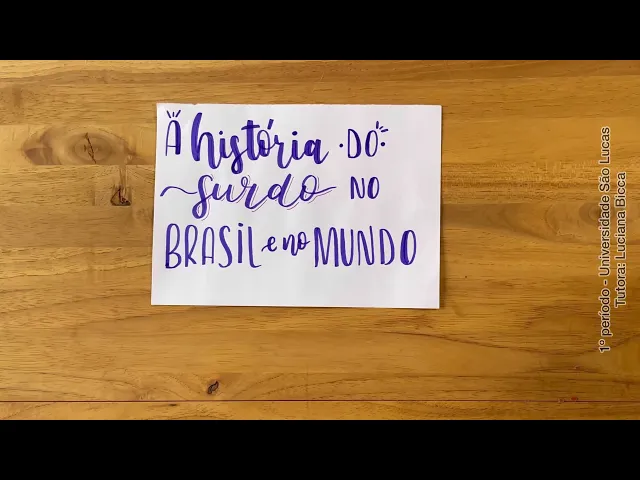 A história DO
surdo NO
BRASIL e no MUNDO
1º período - Universidade São Lucas
Tutora: Luciana Bicca